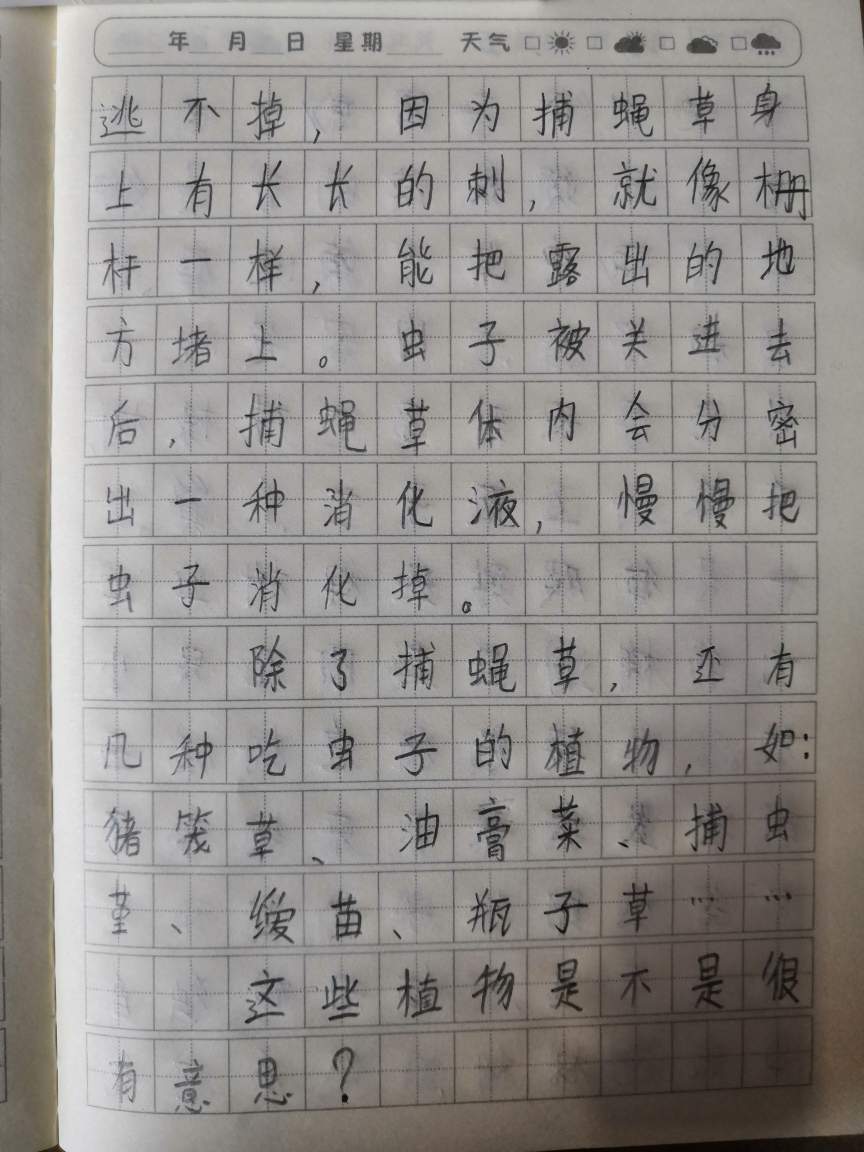 年 月 日 星期 天气
逃不掉，因为捕蝇草身
上有长长的刺，就像栅
杆一样，能把露出的地
方堵上。虫子被关进去
后，捕蝇草体内会分密
出一种消化液，慢慢把
虫子消化掉。
除了捕蝇草，还有
几种吃虫子的植物，如：
猪笼草、油膏菜、捕虫
堇、缨苗、瓶子草……
这些植物是不是很
有意思？